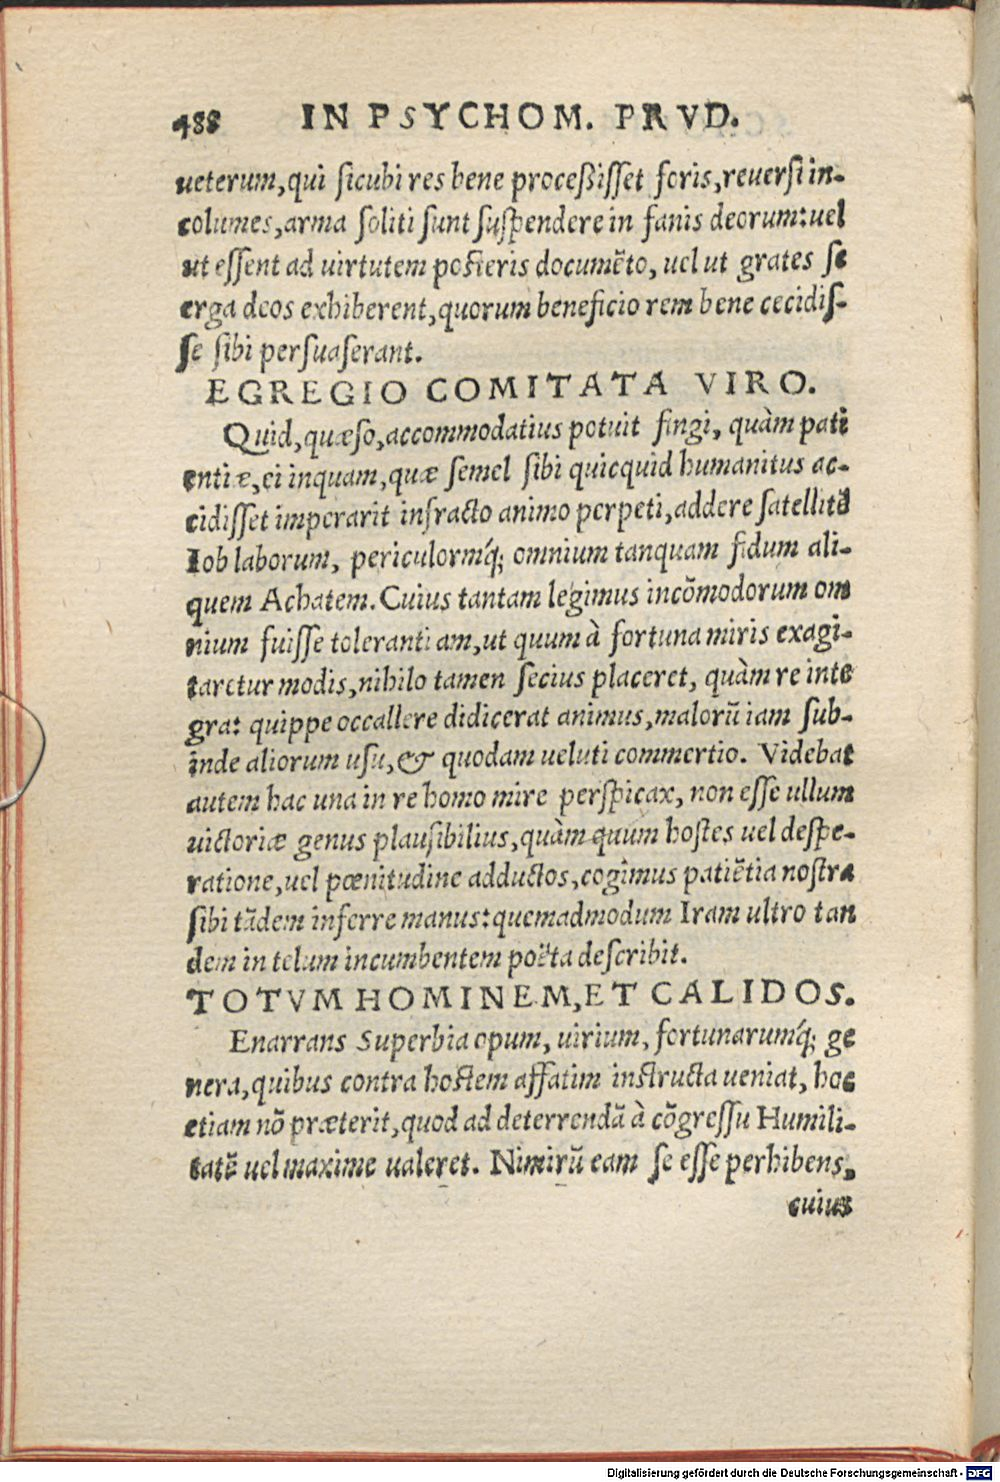 488 IN PSYCHOM. PRVD.
ueterum, qui sicubi res bene processisset foris, reuersi in-
columes, arma soliti sunt suspendere in fanis deorum: uel
ut essent ad uirtutem posteris documẽto, uel ut grates se
erga deos exhiberent, quorum beneficio rem bene cecidis-
se sibi persuaserant.
EGREGIO COMITATA VIRO.
Quid, quæso, accommodatius potuit fingi, quàm pati
entiæ, ei inquam, quæ semel sibi quicquid humanitus ac-
cidisset imperarit infracto animo perpeti, addere satellitẽ
Iob laborum, periculormq́; omnium tanquam fidum ali-
quem Achatem. Cuius tantam legimus incõmodorum om
nium fuisse tolerantiam, ut quum à fortuna miris exagi-
taretur modis, nihilo tamen secius placeret, quàm re inte
gra: quippe occallere didicerat animus, malorũ iam sub-
inde aliorum usu, & quodam ueluti commertio. Videbat
autem hac una in re homo mire perspicax, non esse ullum
uictoriæ genus plausibilius, quàm quum hostes uel despe-
ratione, uel pœnitudine adductos, cogimus patiẽtia nostra
sibi tãdem inferre manus: quemadmodum Iram ultro tan
dem in telum incumbentem poëta describit.
TOTVM HOMINEM, ET CALIDOS.
Enarrans Superbia opum, uirium, fortunarumq́; ge
nera, quibus contra hostem affatim instructa ueniat, hoc
etiam nõ præterit, quod ad deterrendã à cõgressu Humili-
tatẽ uel maxime ualeret. Nimirũ eam se esse perhibens,
cuius
Digitalisierung gefördert durch die Deutsche Forschungsgemeinschaft - DFG